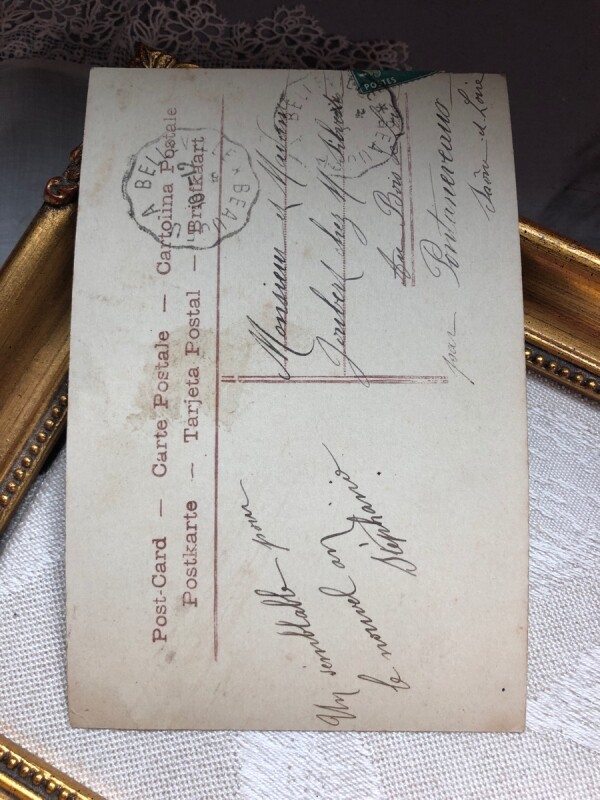 Post-Card — Carte Postale — Cartolina Postale
Postkarte — Tarjeta Postal — Briefkaart
Un semblable pour
le nouvel an
Stéphanie.
Monsieur et Madame
chez Mr
Au Bois
par Pontanevaux
Saône et Loire
POSTES
A BEL
BEA